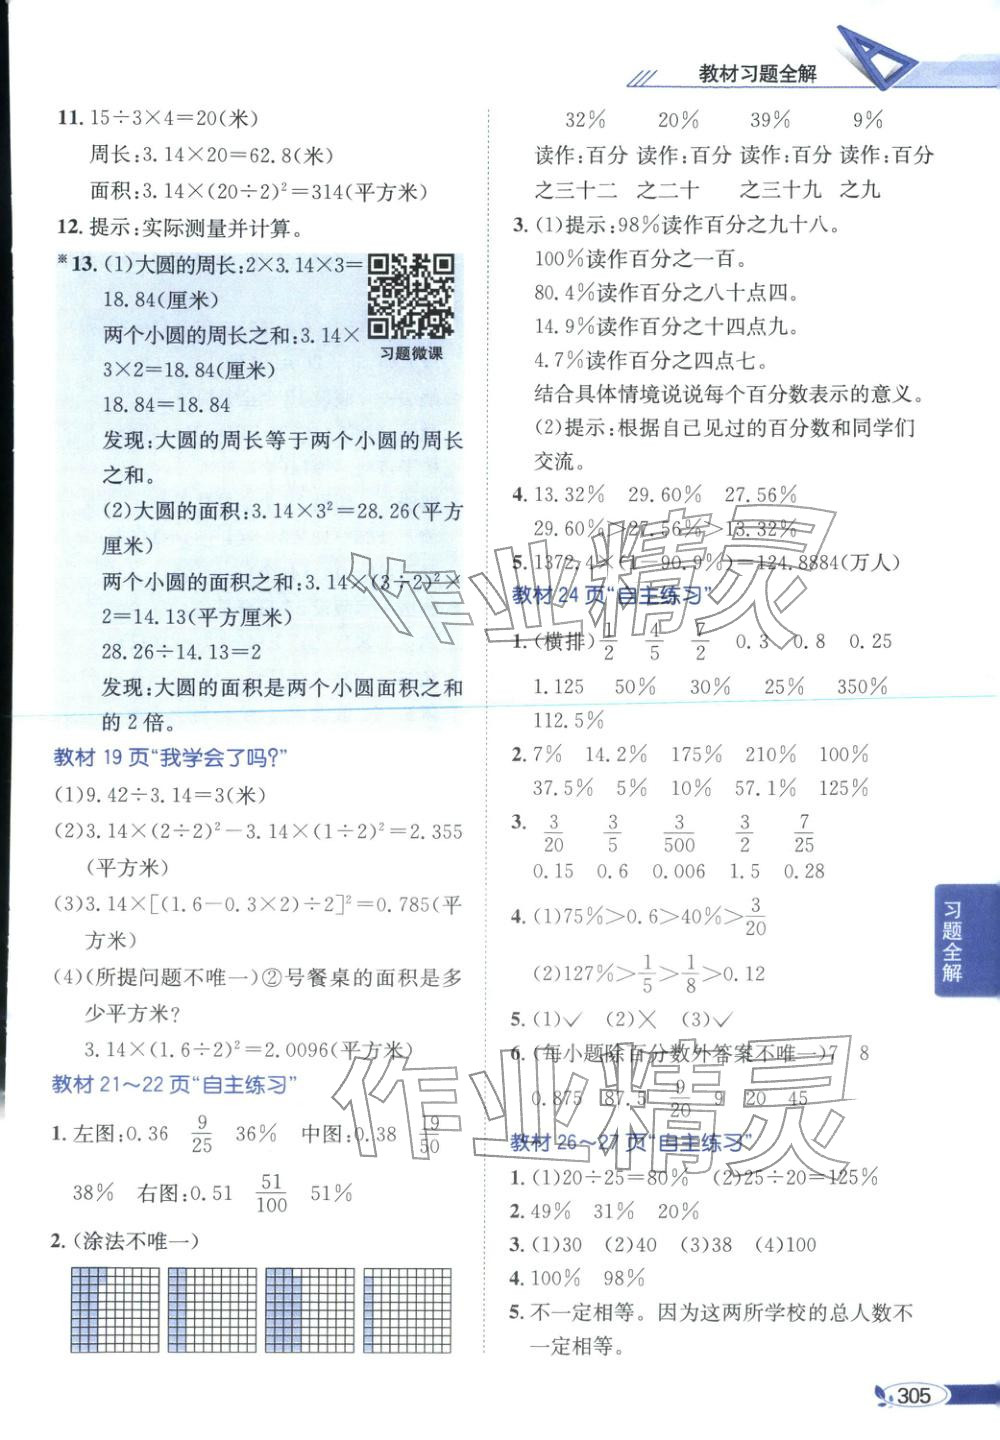 教材习题全解
11. 15÷3×4=20(米)
周长:3.14×20=62.8(米)
面积:3.14×(20÷2)²=314(平方米)
12. 提示:实际测量并计算。
※13. (1)大圆的周长:2×3.14×3=
18.84(厘米)
两个小圆的周长之和:3.14×
3×2=18.84(厘米)
18.84=18.84
习题微课
发现:大圆的周长等于两个小圆的周长
之和。
(2)大圆的面积:3.14×3²=28.26(平方
厘米)
两个小圆的面积之和:3.14×(3÷2)²×
2=14.13(平方厘米)
28.26÷14.13=2
发现:大圆的面积是两个小圆面积之和
的2倍。
教材19页“我学会了吗?”
(1)9.42÷3.14=3(米)
(2)3.14×(2÷2)²-3.14×(1÷2)²=2.355
(平方米)
(3)3.14×[(1.6-0.3×2)÷2]²=0.785(平
方米)
(4)(所提问题不唯一)②号餐桌的面积是多
少平方米?
3.14×(1.6÷2)²=2.0096(平方米)
教材21~22页“自主练习”
1. 左图:0.36 9/25 36% 中图:0.38 19/50
38% 右图:0.51 51/100 51%
2. (涂法不唯一)
32% 20% 39% 9%
读作:百分 读作:百分 读作:百分 读作:百分
之三十二 之二十 之三十九 之九
3. (1)提示:98%读作百分之九十八。
100%读作百分之一百。
80.4%读作百分之八十点四。
14.9%读作百分之十四点九。
4.7%读作百分之四点七。
结合具体情境说说每个百分数表示的意义。
(2)提示:根据自己见过的百分数和同学们
交流。
4. 13.32% 29.60% 27.56%
29.60%>27.56%>13.32%
5. 1372.4×(1-90.9%)=124.8884(万人)
教材24页“自主练习”
1. (横排)1/2 4/5 7/2 0.3 0.8 0.25
1.125 50% 30% 25% 350%
112.5%
2. 7% 14.2% 175% 210% 100%
37.5% 5% 10% 57.1% 125%
3. 3/20 3/5 3/500 3/2 7/25
0.15 0.6 0.006 1.5 0.28
4. (1)75%>0.6>40%>3/20
(2)127%>1/5>1/8>0.12
5. (1)✓ (2)× (3)✓
6. (每小题除百分数外答案不唯一)7 8
0.875 87.5 9/20 9 20 45
教材26~27页“自主练习”
1. (1)20÷25=80% (2)25÷20=125%
2. 49% 31% 20%
3. (1)30 (2)40 (3)38 (4)100
4. 100% 98%
5. 不一定相等。因为这两所学校的总人数不
一定相等。
习题全解
305
作业精灵
作业精灵